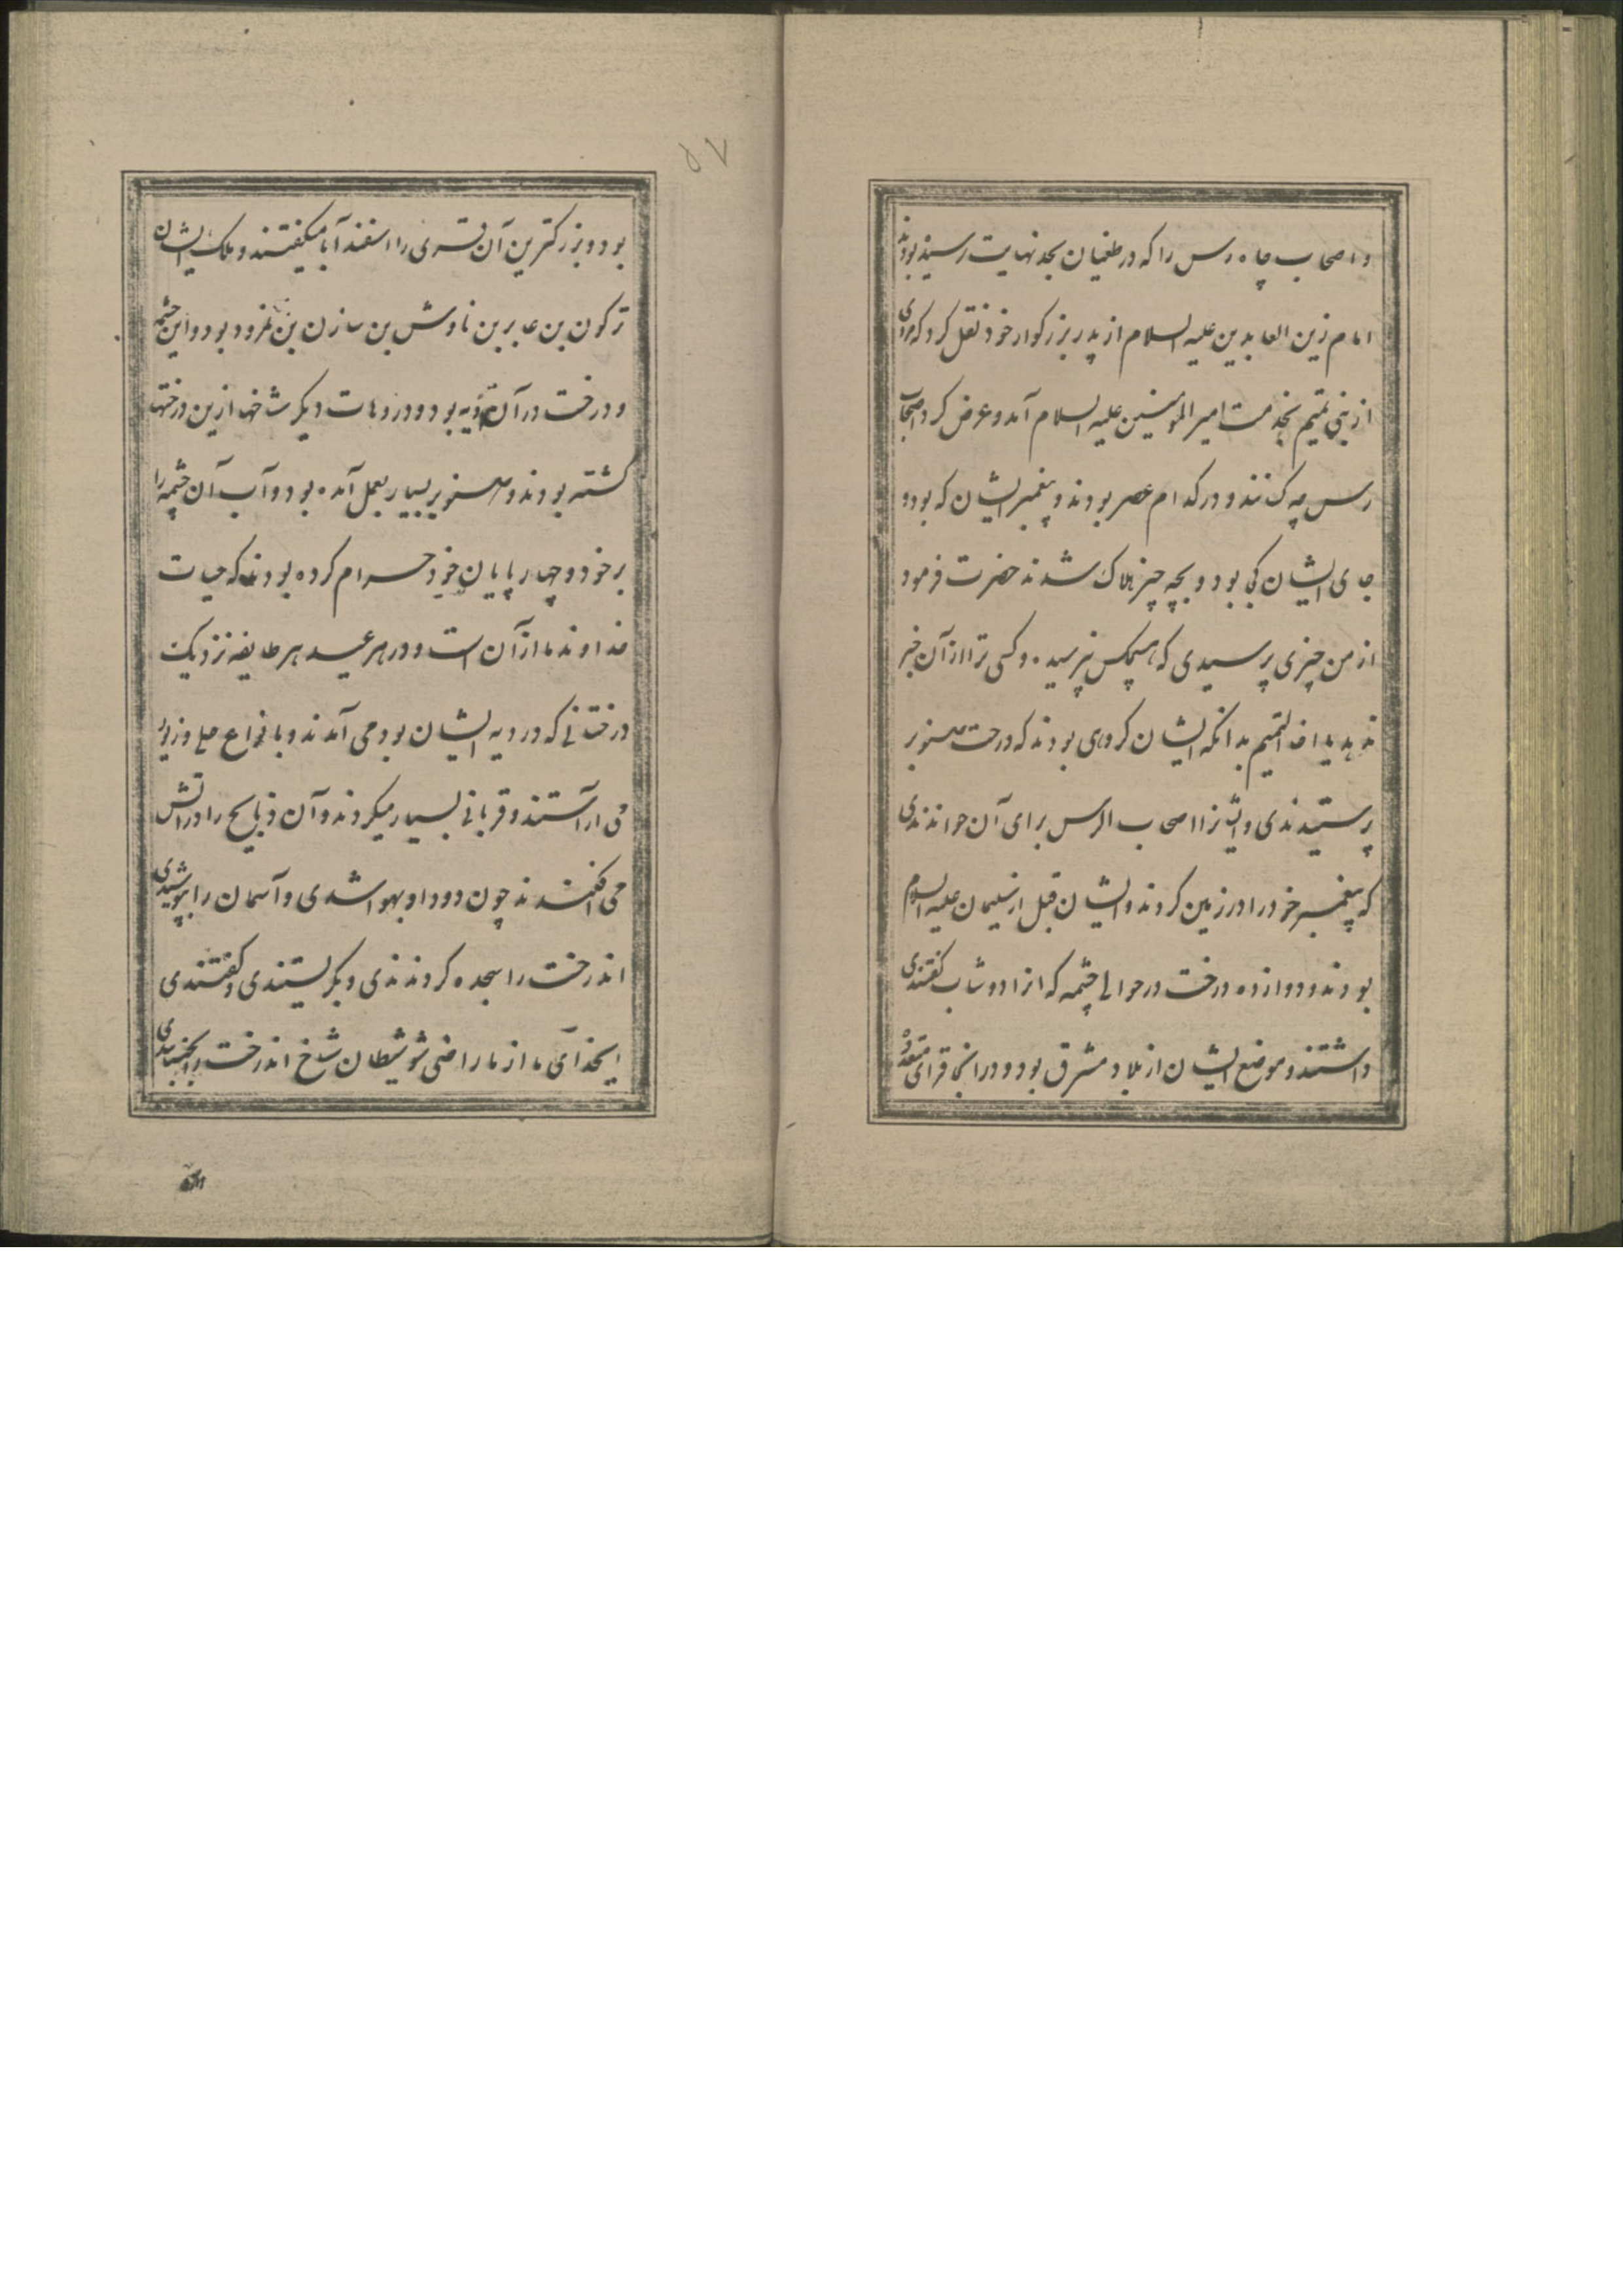 و اصحاب چاه رس را که در طغیان بحد نهایت رسیده بودند
امام زین العابدین علیه السلام از پدر بزرکوار خود نقل کرد که مردی
از بنی تمیم بخدمت امیر المومنین علیه السلام آمد و عرض کرد اصحاب
رس چه کسانند و در کدام عصر بودند و پیغمبر ایشان که بود و
جای ایشان کجا بود و بچه چیز هلاک شدند حضرت فرمود
از من چیزی پرسیدی که هیچکس نپرسیده و کسی ترا از آن خبر
ندهد یا اخا التمیم بدانکه ایشان کروهی بودند که درخت صنوبر
پرستیدندی و ایشانرا اصحاب الرس برای آن خواندندی
که پیغمبر خود را در زمین کردند و ایشان قبل از سلیمان علیه السلام
بودند و دوازده درخت در حوالی چشمه که انرا دوشاب کفتندی
داشتند و موضع ایشان از بلاد مشرق بود و در انجا قرای متعدد
۵۷
بود و بزرکترین آن قری را اسفندآباد میکفتند و ملک ایشان
ترکون بن عابر بن ناوش بن سازن بن نمرود بود و این چشمه
و درخت در آن قریه بود و در دهات دیکر شاخها ازین درختها
کشته بودند و صنوبر بسیار بعمل آمده بود و آب آن چشمه را
بر خود و چهارپایان خود حرام کرده بودند که حیات
خداوند ما از آن است و در هر عید هر طایفه نزدیک
درختانی که در دیه ایشان بود می آمدند و بانواع حلی و زیور
می اراستند و قربانی بسیار میکردند و آن ذبایح را در اتش
می افکندند چون دود او بهوا شدی و آسمان را بپوشیدی
اندرخت را سجده کردندی و بکریستندی و کفتندی
ایخدای ما از ما راضی شو شیطان شاخ اندرخت را بجنبانیدی